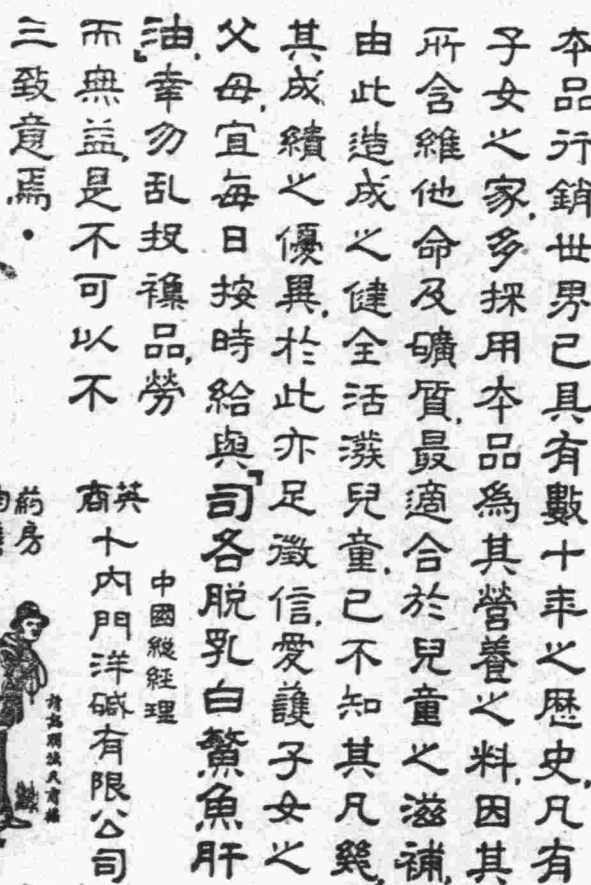 本品行銷世界已具有數十年之歷史，凡有
子女之家，多採用本品為其營養之料，因其
所含維他命及礦質，最適合於兒童之滋補，
由此造成之健全活潑兒童，已不知其凡幾，
其成績之優異，於此亦足徵信，愛護子女之
父母，宜每日按時給與『司各脫乳白鰵魚肝
油』，幸勿乱投襍品，勞
而無益，是不可以不
三致意焉．
中國總經理
英商卜內門洋碱有限公司
药房